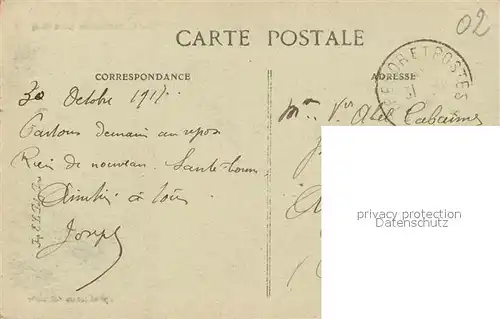 02
CARTE POSTALE
TRESOR ET POSTES
31
CORRESPONDANCE
ADRESSE
30 Octobre 1917
Partons demain au repos
Rien de nouveau. Santé bonne
Amitiés à tous
Joseph
Mme Vve Abel Cabaimes
privacy protection
Datenschutz